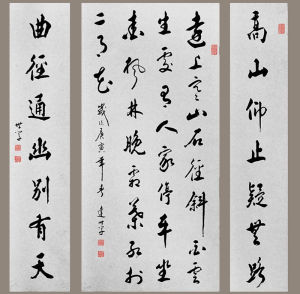 高山仰止疑無路
遠上寒山石徑斜白雲
生處有人家停車坐
愛楓林晚霜葉紅於
二月花
歲次庚寅年
曲徑通幽別有天